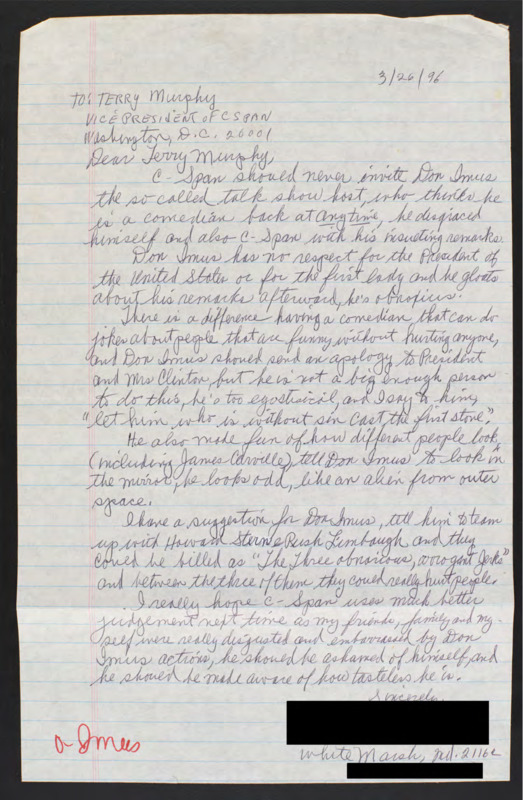 3/26/96
TO: TERRY Murphy
VICE PRESIDENT OF C SPAN
Washington, D.C. 20001
Dear Terry Murphy,
C-Span should never invite Don Imus
the so called talk show host, who thinks he
is a comedian back at anytime, he disgraced
himself and also C-Span with his insulting remarks.
Don Imus has no respect for the President of
the United States or for the first lady and he gloats
about his remarks afterward, he's obnoxious.
There is a difference having a comedian, that can do
jokes about people that are funny without hurting anyone,
and Don Imus should send an apology to President
and Mrs Clinton but he is not a big enough person
to do this, he's too egostisical, and I say to him,
"let him who is without sin cast the first stone".
He also made fun of how different people look,
(including James Carville), tell Don Imus to look in
the mirror, he looks odd, like an alien from outer
space.
I have a suggestion for Don Imus, tell him to team
up with Howard Stern & Rush Limbaugh and they
could be billed as "The Three obnoxious, arrogant Jerks"
and between the three of them they could really hurt people.
I really hope C-Span uses much better
judgement next time as my friends, family and my-
self were really disgusted and embarrassed by Don
Imus actions, he should be ashamed of himself, and
he should be made aware of how tasteless he is.
Sincerely,
White Marsh, Md. 21162
Imus